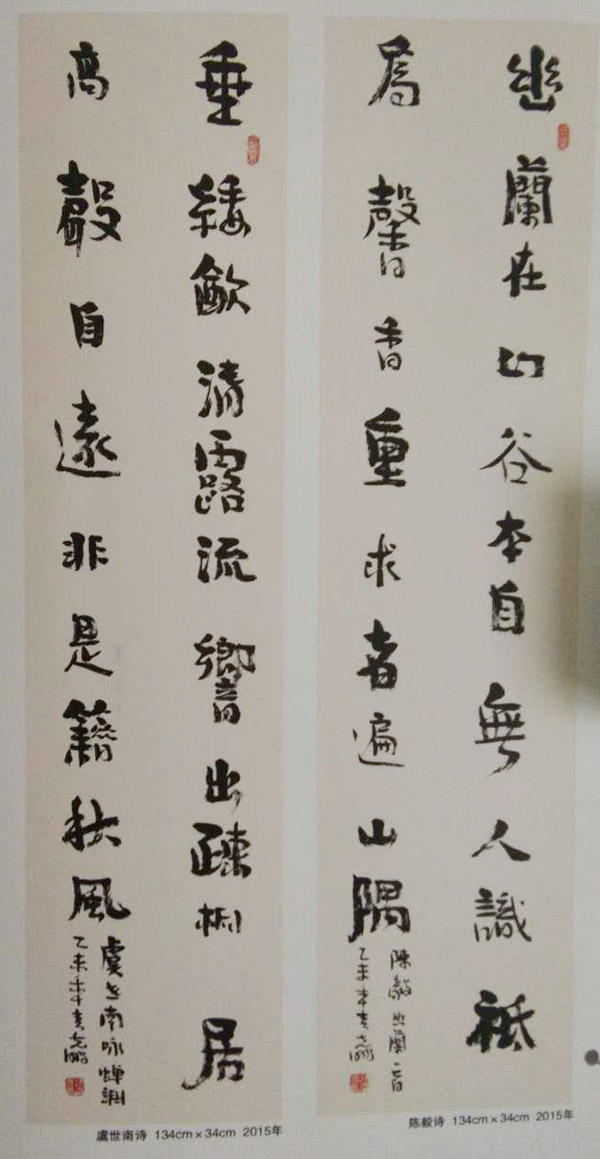 幽蘭在山谷本自無人識祗
為馨香重求者遍山隅
陳毅幽蘭一首
乙未年
陈毅诗 134cm×34cm 2015年
垂緌飲清露流響出疎桐居
高聲自遠非是籍秋風
虞世南咏蟬詩
乙未年
虞世南诗 134cm×34cm 2015年